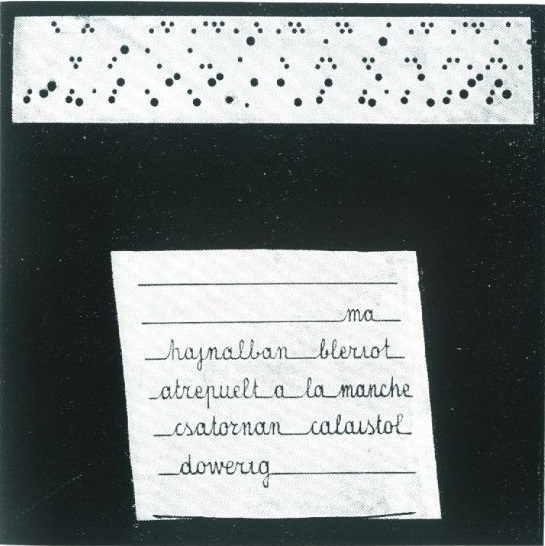 ma
hajnalban bleriot
atrepuelt a la manche
csatornan calaistol
dowerig